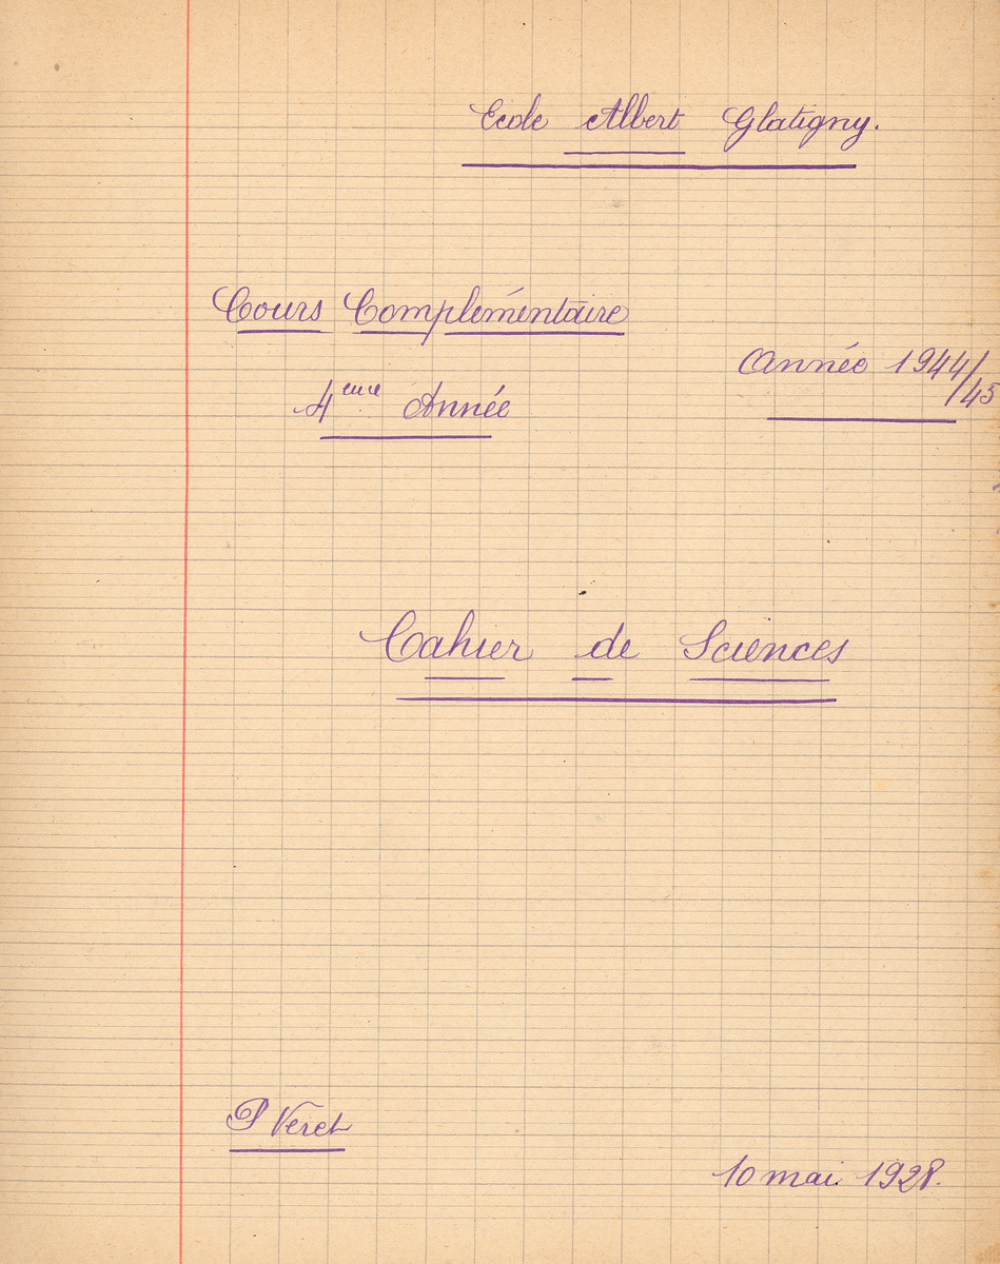 Ecole Albert Glatigny.
Cours Complémentaire
Année 1944/45
4eme Année
Cahier de Sciences
P Veret
10 mai 1928.